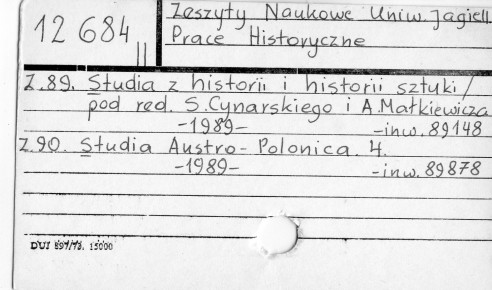 12 684
Zeszyty Naukowe Uniw. Jagiell.
Prace Historyczne
Z.89. Studia z historii i historii sztuki /
pod red. S. Cynarskiego i A. Małkiewicza
-1989- -inw. 89148
Z.90. Studia Austro-Polonica. 4.
-1989- -inw. 89878
DUI 897/73. 15000